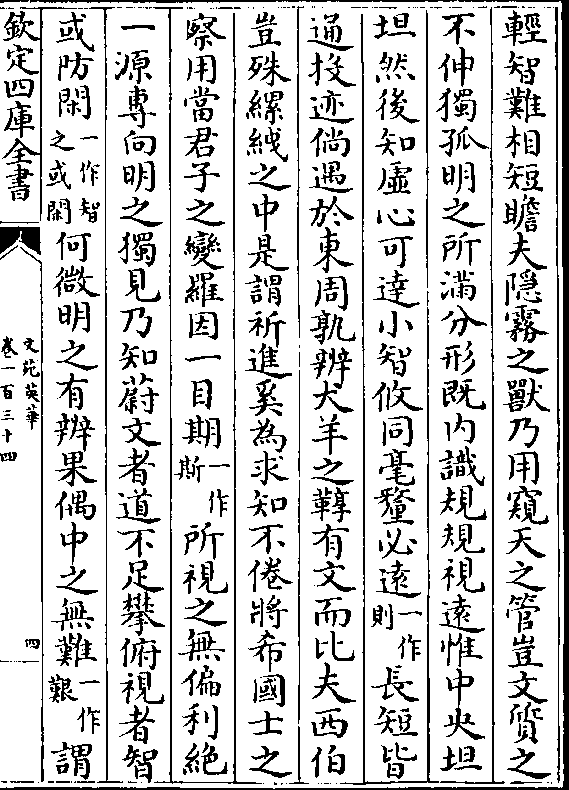 輕智難相短瞻夫隱霧之獸乃用窺天之管豈文質之
不伸獨孤明之所滿分形既内識規規視遠惟中央坦
坦然後知虛心可達小智攸同毫釐必遠一作則長短皆
通投迹倘遇於東周孰辨犬羊之鞟有文而比夫西伯
豈殊縲絏之中是謂祈進奚為求知不倦將希國士之
察用當君子之變羅因一目期一作斯所視之無偏利絶
一源專向明之獨見乃知蔚文者道不足攀俯視者智
或防閑一作智之或閑何微明之有辨果偶中之無難一作艱謂
欽定四庫全書
文苑英華
卷一百三十四
四